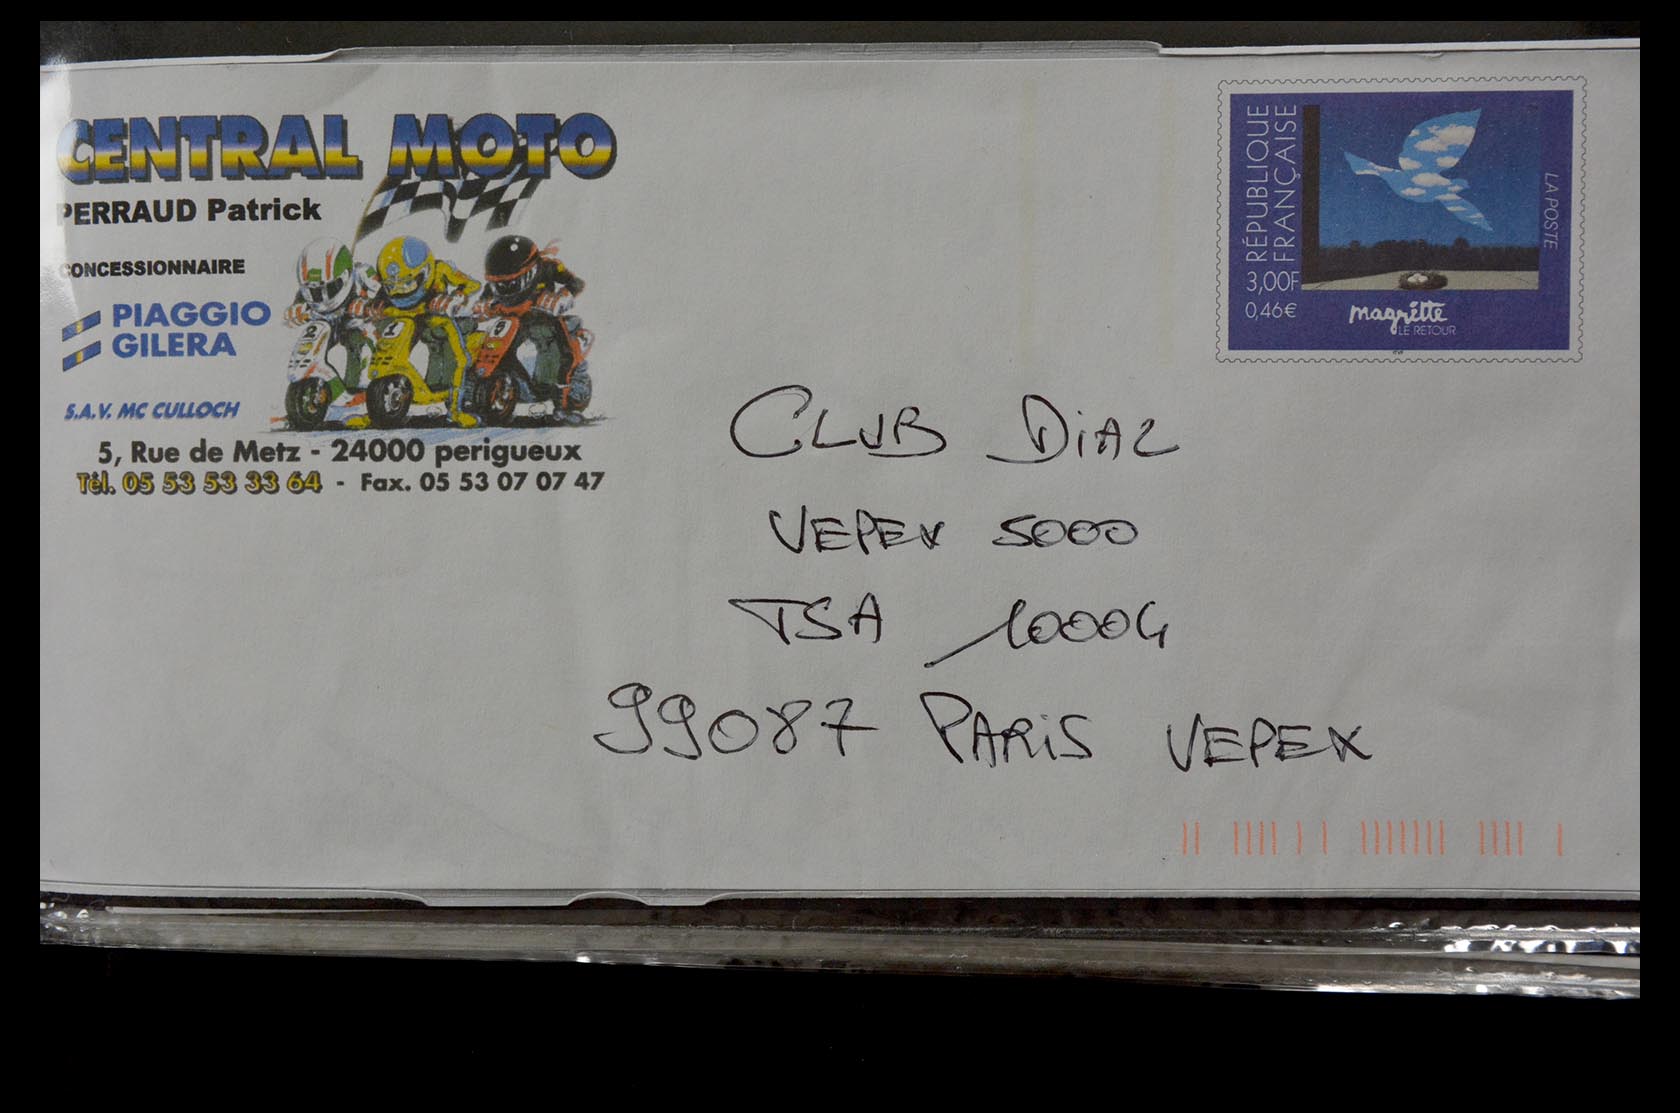 CENTRAL MOTO
PERRAUD Patrick
CONCESSIONNAIRE
PIAGGIO
GILERA
S.A.V. MC CULLOCH
2 1
5, Rue de Metz - 24000 perigueux
Tél. 05 53 53 33 64 - Fax. 05 53 07 07 47
RÉPUBLIQUE
FRANÇAISE
3,00F
0,46€
LA POSTE
magritte
LE RETOUR
CLUB DiAL
VEPEX 5000
TSA 10004
99087 PARiS VEPEX